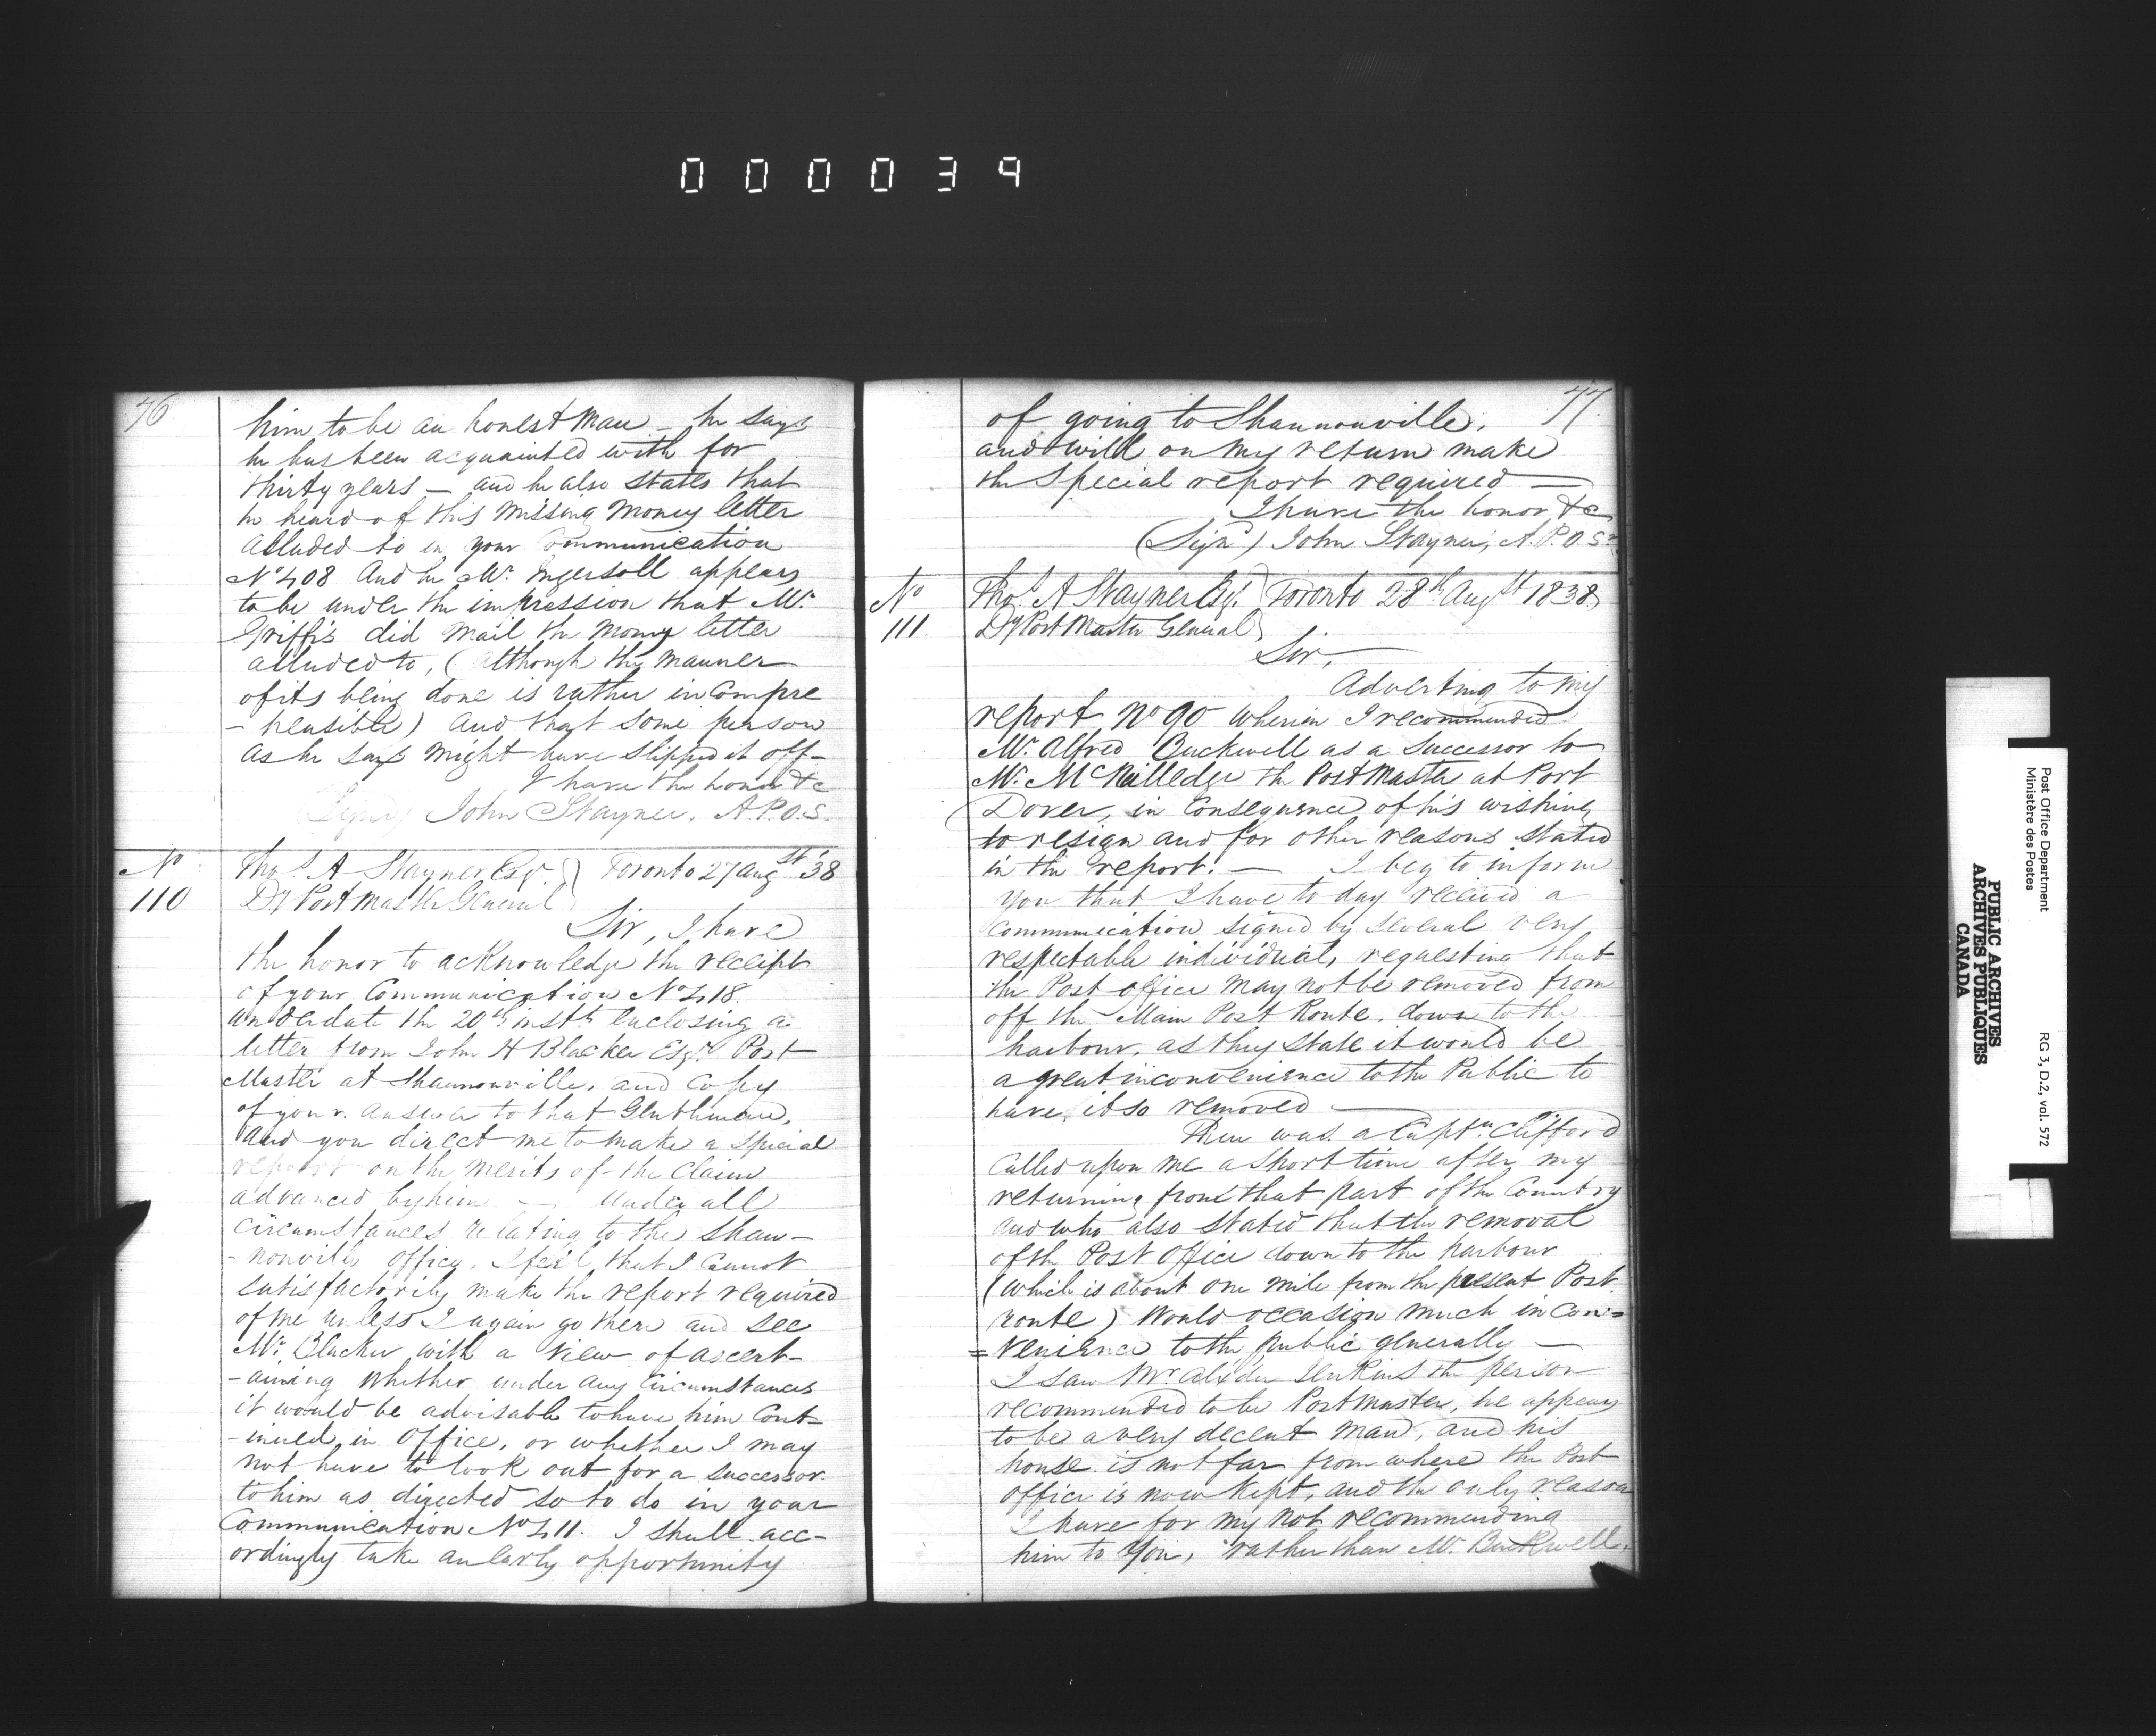 000039
76
him to be an honest man – he says
he has been acquainted with for
thirty years – and he also states that
he heard of this missing money letter
alluded to in your Communication
No 408 And he Mr. Ingersoll appears
to be under the impression that Mr.
Griffis did mail the money letter
alluded to, (although the manner
of its being done is rather incompre
- hensible) and that some person
as he says might have slipped it off –
I have the honor &c
Signed John Stayner. A.P.O.S.
No 110
Thos A Stayner Esqr. } Toronto 27 Augst 38
Dy Post Master General
Sir, I have
the honor to acknowledge the receipt
of your Communication No 418
under date the 20th instt. enclosing a
letter from John H Blacker Esqr. Post
Master at Shannonville, and Copy
of your answer to that Gentleman,
and you direct me to make a special
report on the merits of the Claim
advanced by him – Under all
circumstances relating to the Shan –
- nonville Office, I feel that I Cannot
satisfactorily make the report required
of me unless I again go there and see
Mr. Blacker with a view of ascert –
- aining whether under any Circumstances
it would be advisable to have him Cont –
- inued in Office, or whether I may
not have to look out for a successor
to him as directed so to do in your
Communication No 411. I shall acc –
ordingly take an early opportunity
77.
of going to Shannonville,
and will on my return make
the special report required —
I have the honor &c
(Signd) John Stayner, A.P.O.Sr.
No 111.
Thos A Stayner Esqr. } Toronto 28th Augst 1838
Dy Post Master General
Sir,
Adverting to my
report No 90 wherein I recommended
Mr. Alfred Buckwell as a Successor to
Mr. McNeilledge the Post Master at Port
Dover, in Consequence of his wishing
to resign and for other reasons stated
in the report. — I beg to inform
you that I have to day received a
Communication signed by several very
respectable individuals, requesting that
the Post Office may not be removed from
off the Main Post Route, down to the
harbour, as they state it would be
a great inconvenience to the Public to
have it so removed —
There was a Captn. Clifford
Called upon me a short time after my
returning from that part of the Country
and who also stated that the removal
of the Post Office down to the harbour
(which is about one mile from the present Post
route) would occasion much incon =
= venience to the public generally —
I saw Mr. Alexder Jenkins the person
recommended to be Postmaster, he appears
to be a very decent man, and his
house is not far from where the Post
Office is now kept, and the only reason
I have for my not recommending
him to You, rather than Mr. Buckwell,
Post Office Department
Ministère des Postes
RG 3, D.2, vol. 572
PUBLIC ARCHIVES
ARCHIVES PUBLIQUES
CANADA